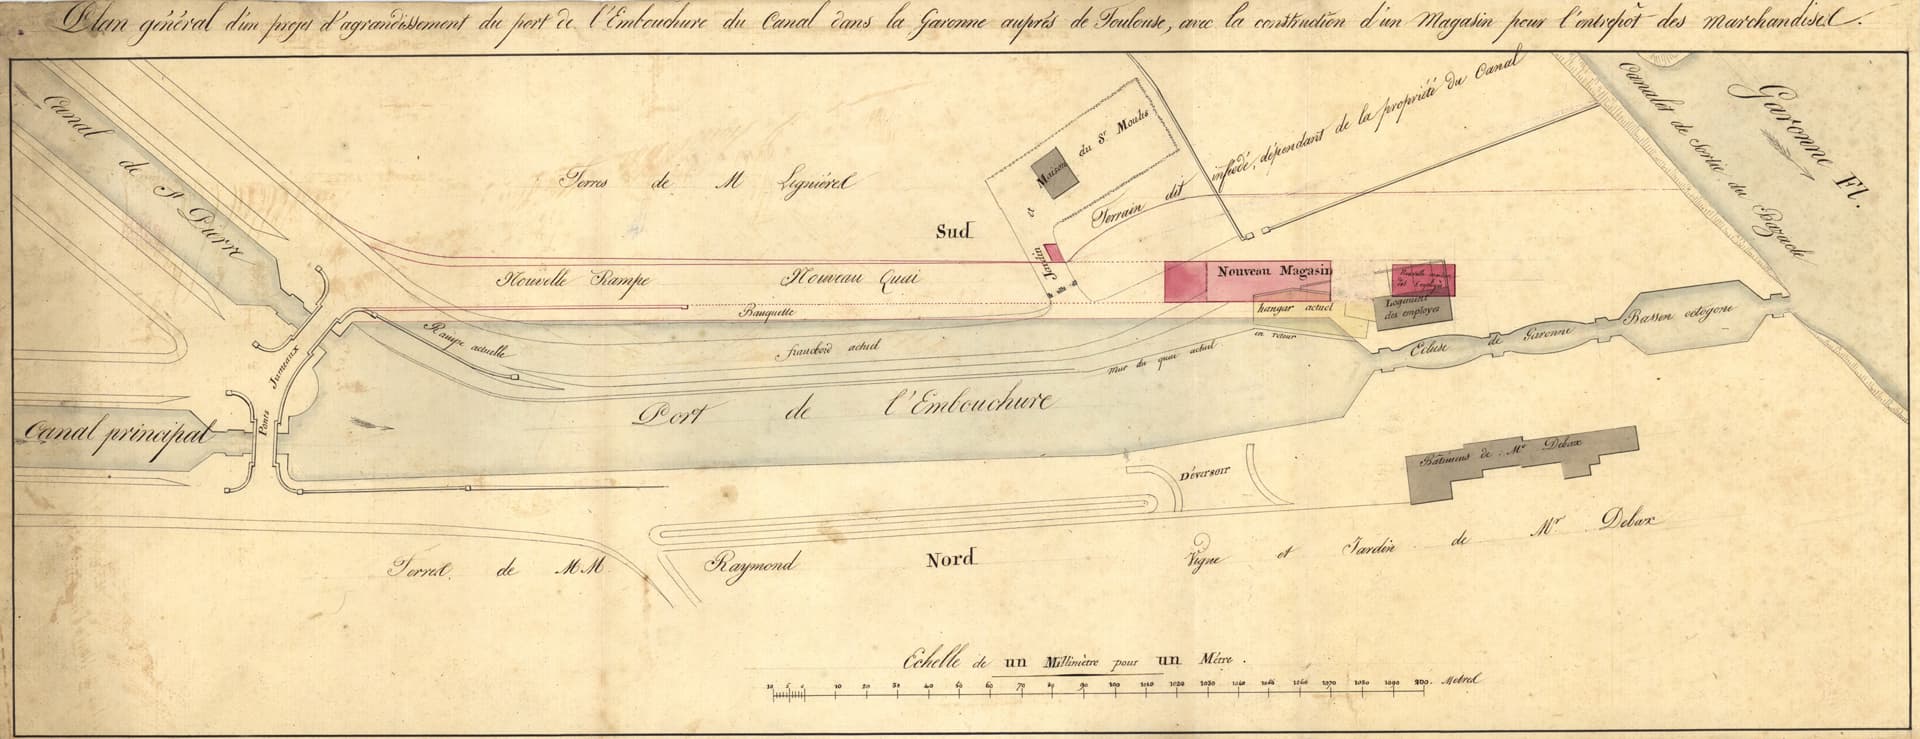 Plan général d'un projet d'agrandissement du port de l'Embouchure du Canal dans la Garonne auprès de Toulouse, avec la construction d'un Magasin pour l'entrepôt des marchandises.
Canal de St Pierre
Terres de M Lignières
Sud
Maison du Sr Moulis
Jardin
Terrain dit inféodé, dépendant de la propriété du Canal
Canalet de Sortie du Bazacle
Garonne Fl.
Nouvelle Rampe
Nouveau Quai
Nouveau Magasin
Banquette
hangar actuel
Logement des employés
en retour
Rampe actuelle
francbord actuel
mur du quai actuel
Ecluse de Garonne
Bassin octogone
Ponts Jumeaux
Canal principal
Port de l'Embouchure
Déversoir
Bâtimens de Mr Debax
Terres de MM. Raymond
Nord
Vigne et Jardin de Mr Debax
Echelle de un Millimètre pour un Mètre.
10 5 0 10 20 30 40 50 60 70 80 90 100 200. Mètres